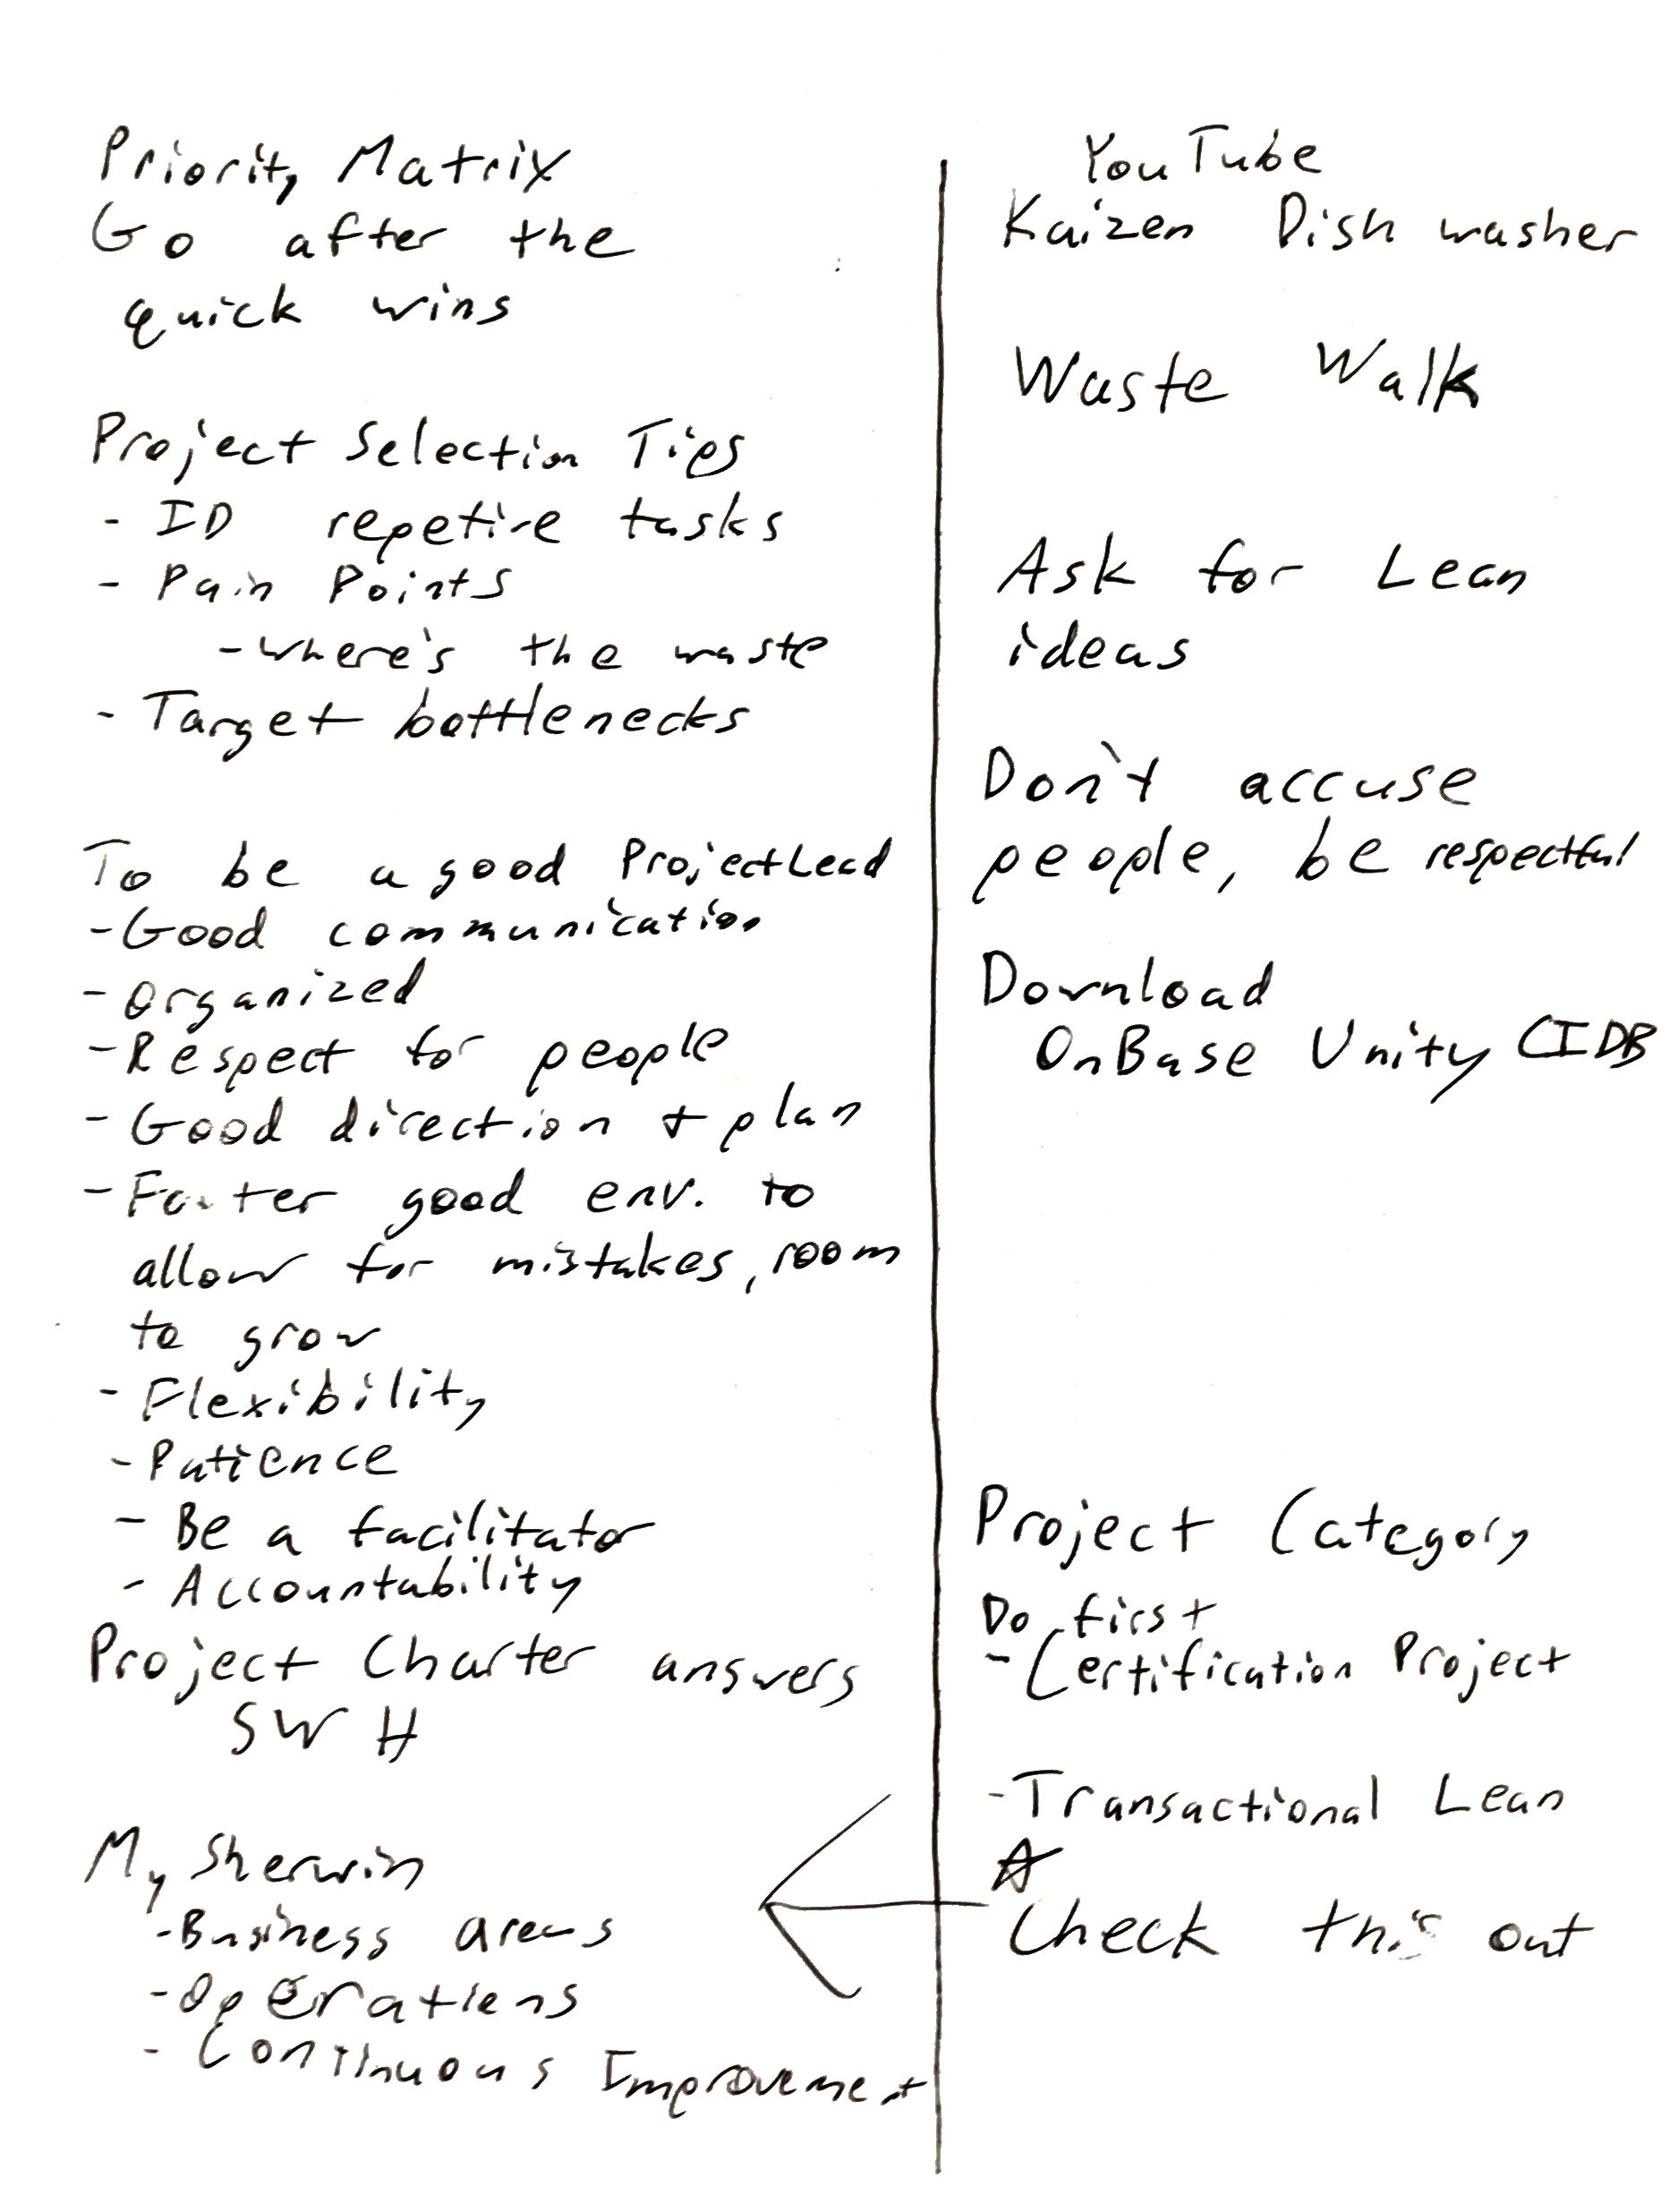 Priority Matrix
Go after the
quick wins
Project Selection Tips
- ID repetive tasks
- Pain Points
- where's the waste
- Target bottlenecks
To be a good Project Lead
- Good communication
- organized
- Respect for people
- Good direction + plan
- Foster good env. to
allow for mistakes, room
to grow
- Flexibility
- Patience
- Be a facilitator
- Accountability
Project Charter answers
5W H
My Sherwin
- Business areas
- Operations
- Continuous Improvement
YouTube
Kaizen Dish washer
Waste Walk
Ask for Lean
ideas
Don't accuse
people, be respectful
Download
OnBase Unity CIDB
Project Category
Do first
- Certification Project
- Transactional Lean
Check this out